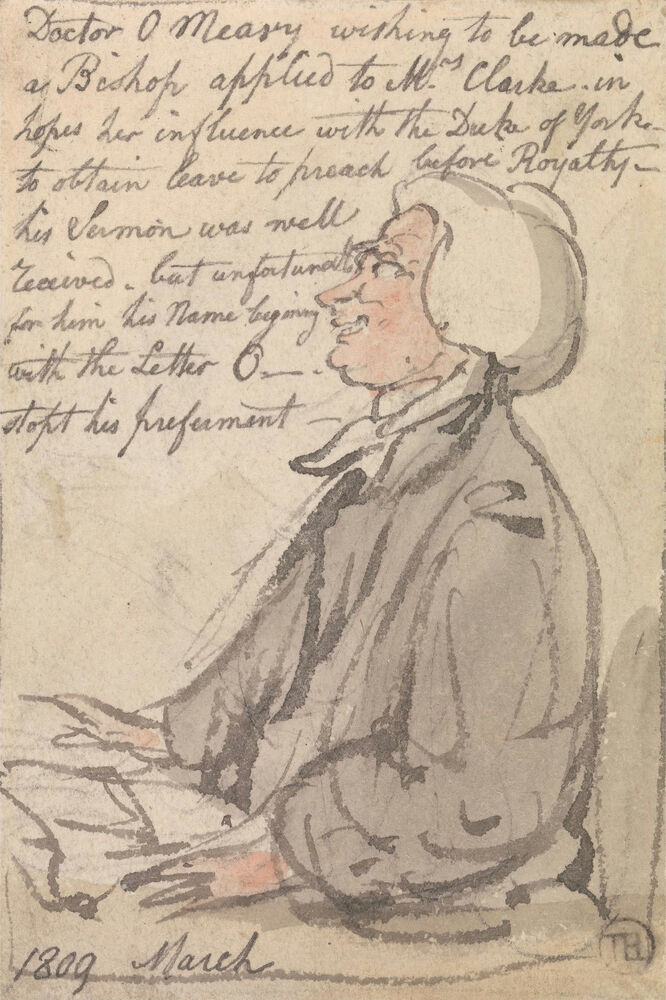 Doctor O Meary wishing to be made
a Bishop applied to Mrs Clarke - in
hopes her influence with the Duke of York -
to obtain leave to preach before Royalty -
his Sermon was well
received - but unfortunately
for him his Name begining
with the Letter O - .
stopt his preferment -
1809 March